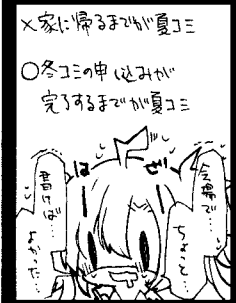 ×家に帰るまでが夏コミ
○冬コミの申し込みが
完了するまでが夏コミ
ぜ
は
会場で…
ちょこっと…
書けば…
よかった…